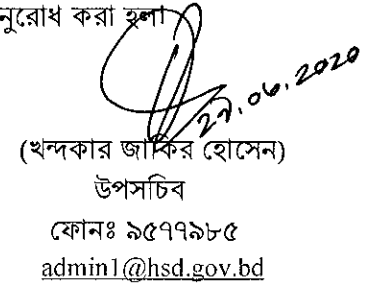 নুরোধ করা হলো
২৭.০৬.২০২০
(খন্দকার জাকির হোসেন)
উপসচিব
ফোনঃ ৯৫৭৭৯৮৫
admin1@hsd.gov.bd